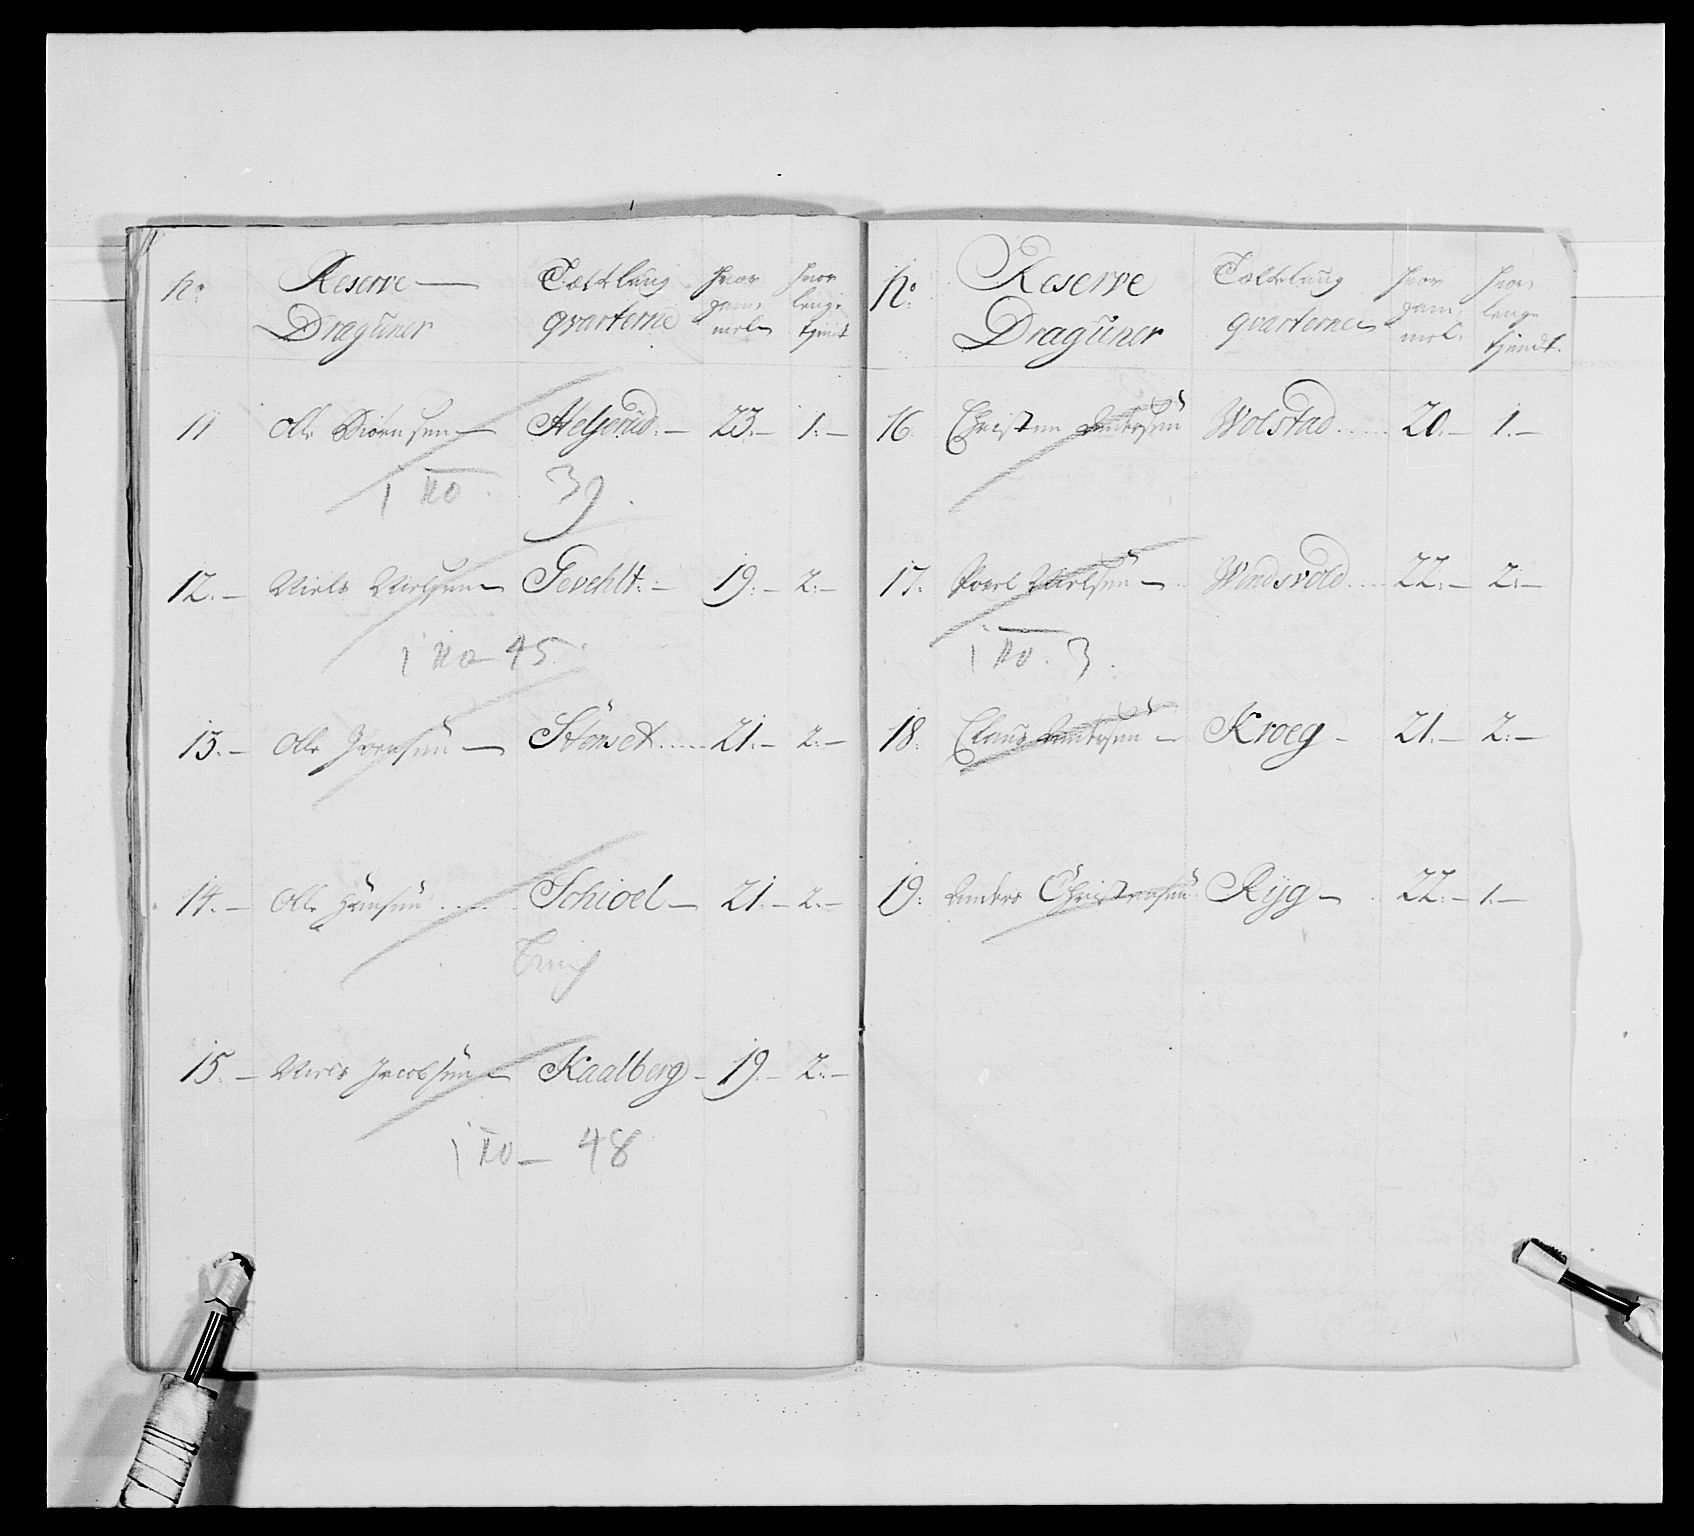 No Reserve Draguner Tælt laug qvarterne hvor gam, mel hvor lenge tjent
11 Olle Biørnsen Helgerud 23. 1.
i No 39.
12. Niels Nielsen Gevehlt 19. 2.
i No 45.
13. Olle Iversen Stenset 21. 2.
14. Olle Hansen Schioel 21. 2.
15. Niels Jacobsen Kaalberg 19. 2.
i No 48
No Reserve Draguner Tælt laug qvarterne hvor gam, mel. hvor lenge tjendt.
16. Christen Andersen Wolstad 20. 1.
17. Poel Nielsen Windsvold 22. 2.
i No. 3.
18. Claus Andersen Kroeg 21. 2.
19. Anders Christensen Ryg 22. 1.